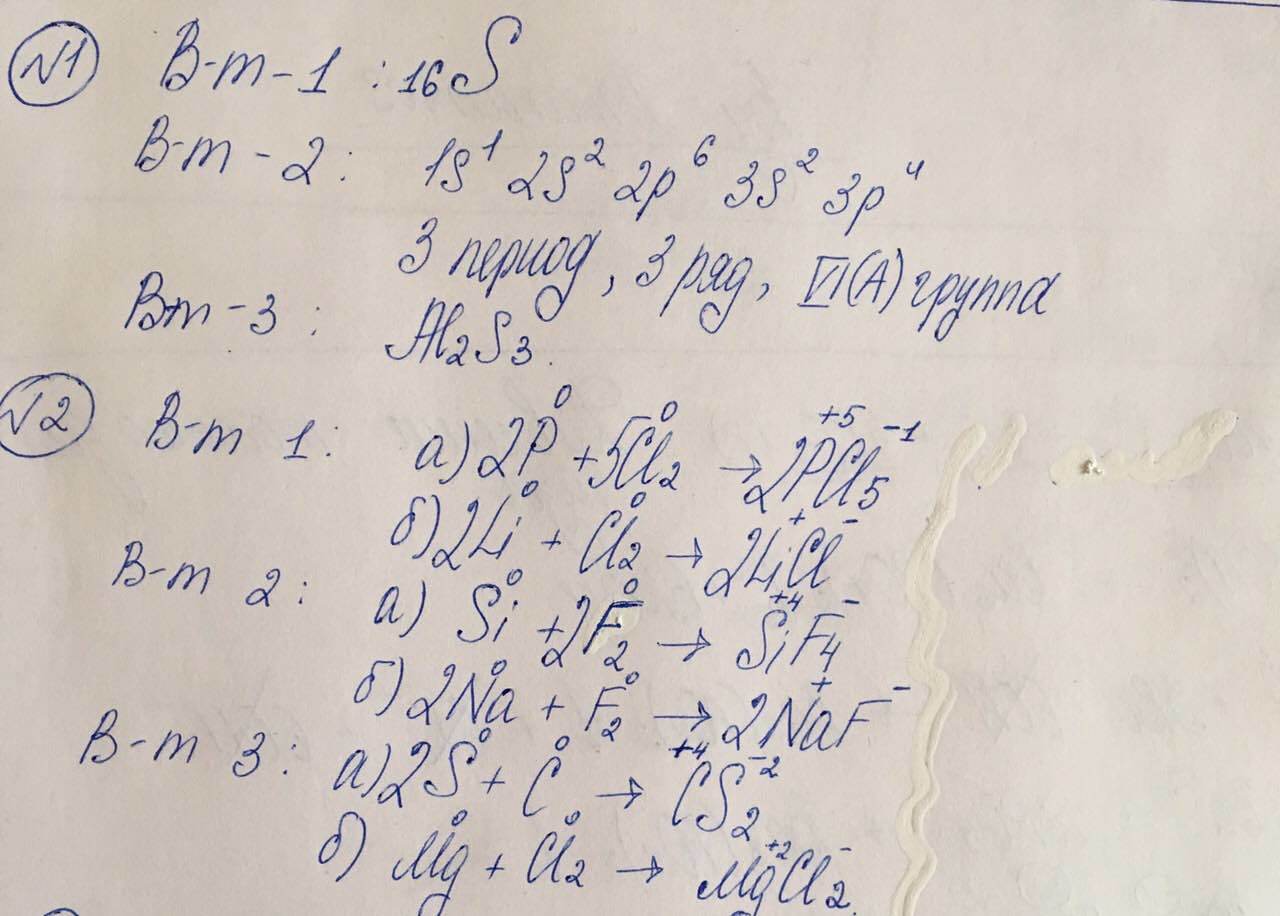 №1 В-т-1 : ₁₆S
В-т-2 : 1s¹ 2s² 2p⁶ 3s² 3p⁴
3 период, 3 ряд, VI(А) группа
В-т-3 : Al₂S₃.
№2 В-т 1 : а) 2P⁰ + 5Cl₂⁰ → 2P⁺⁵Cl₅⁻¹
б) 2Li⁰ + Cl₂⁰ → 2Li⁺Cl⁻
В-т 2 : а) Si⁰ + 2F₂⁰ → Si⁺⁴F₄⁻
б) 2Na⁰ + F₂⁰ → 2Na⁺F⁻
В-т 3 : а) 2S⁰ + C⁰ → C⁺⁴S₂⁻²
б) Mg⁰ + Cl₂⁰ → Mg⁺²Cl₂⁻